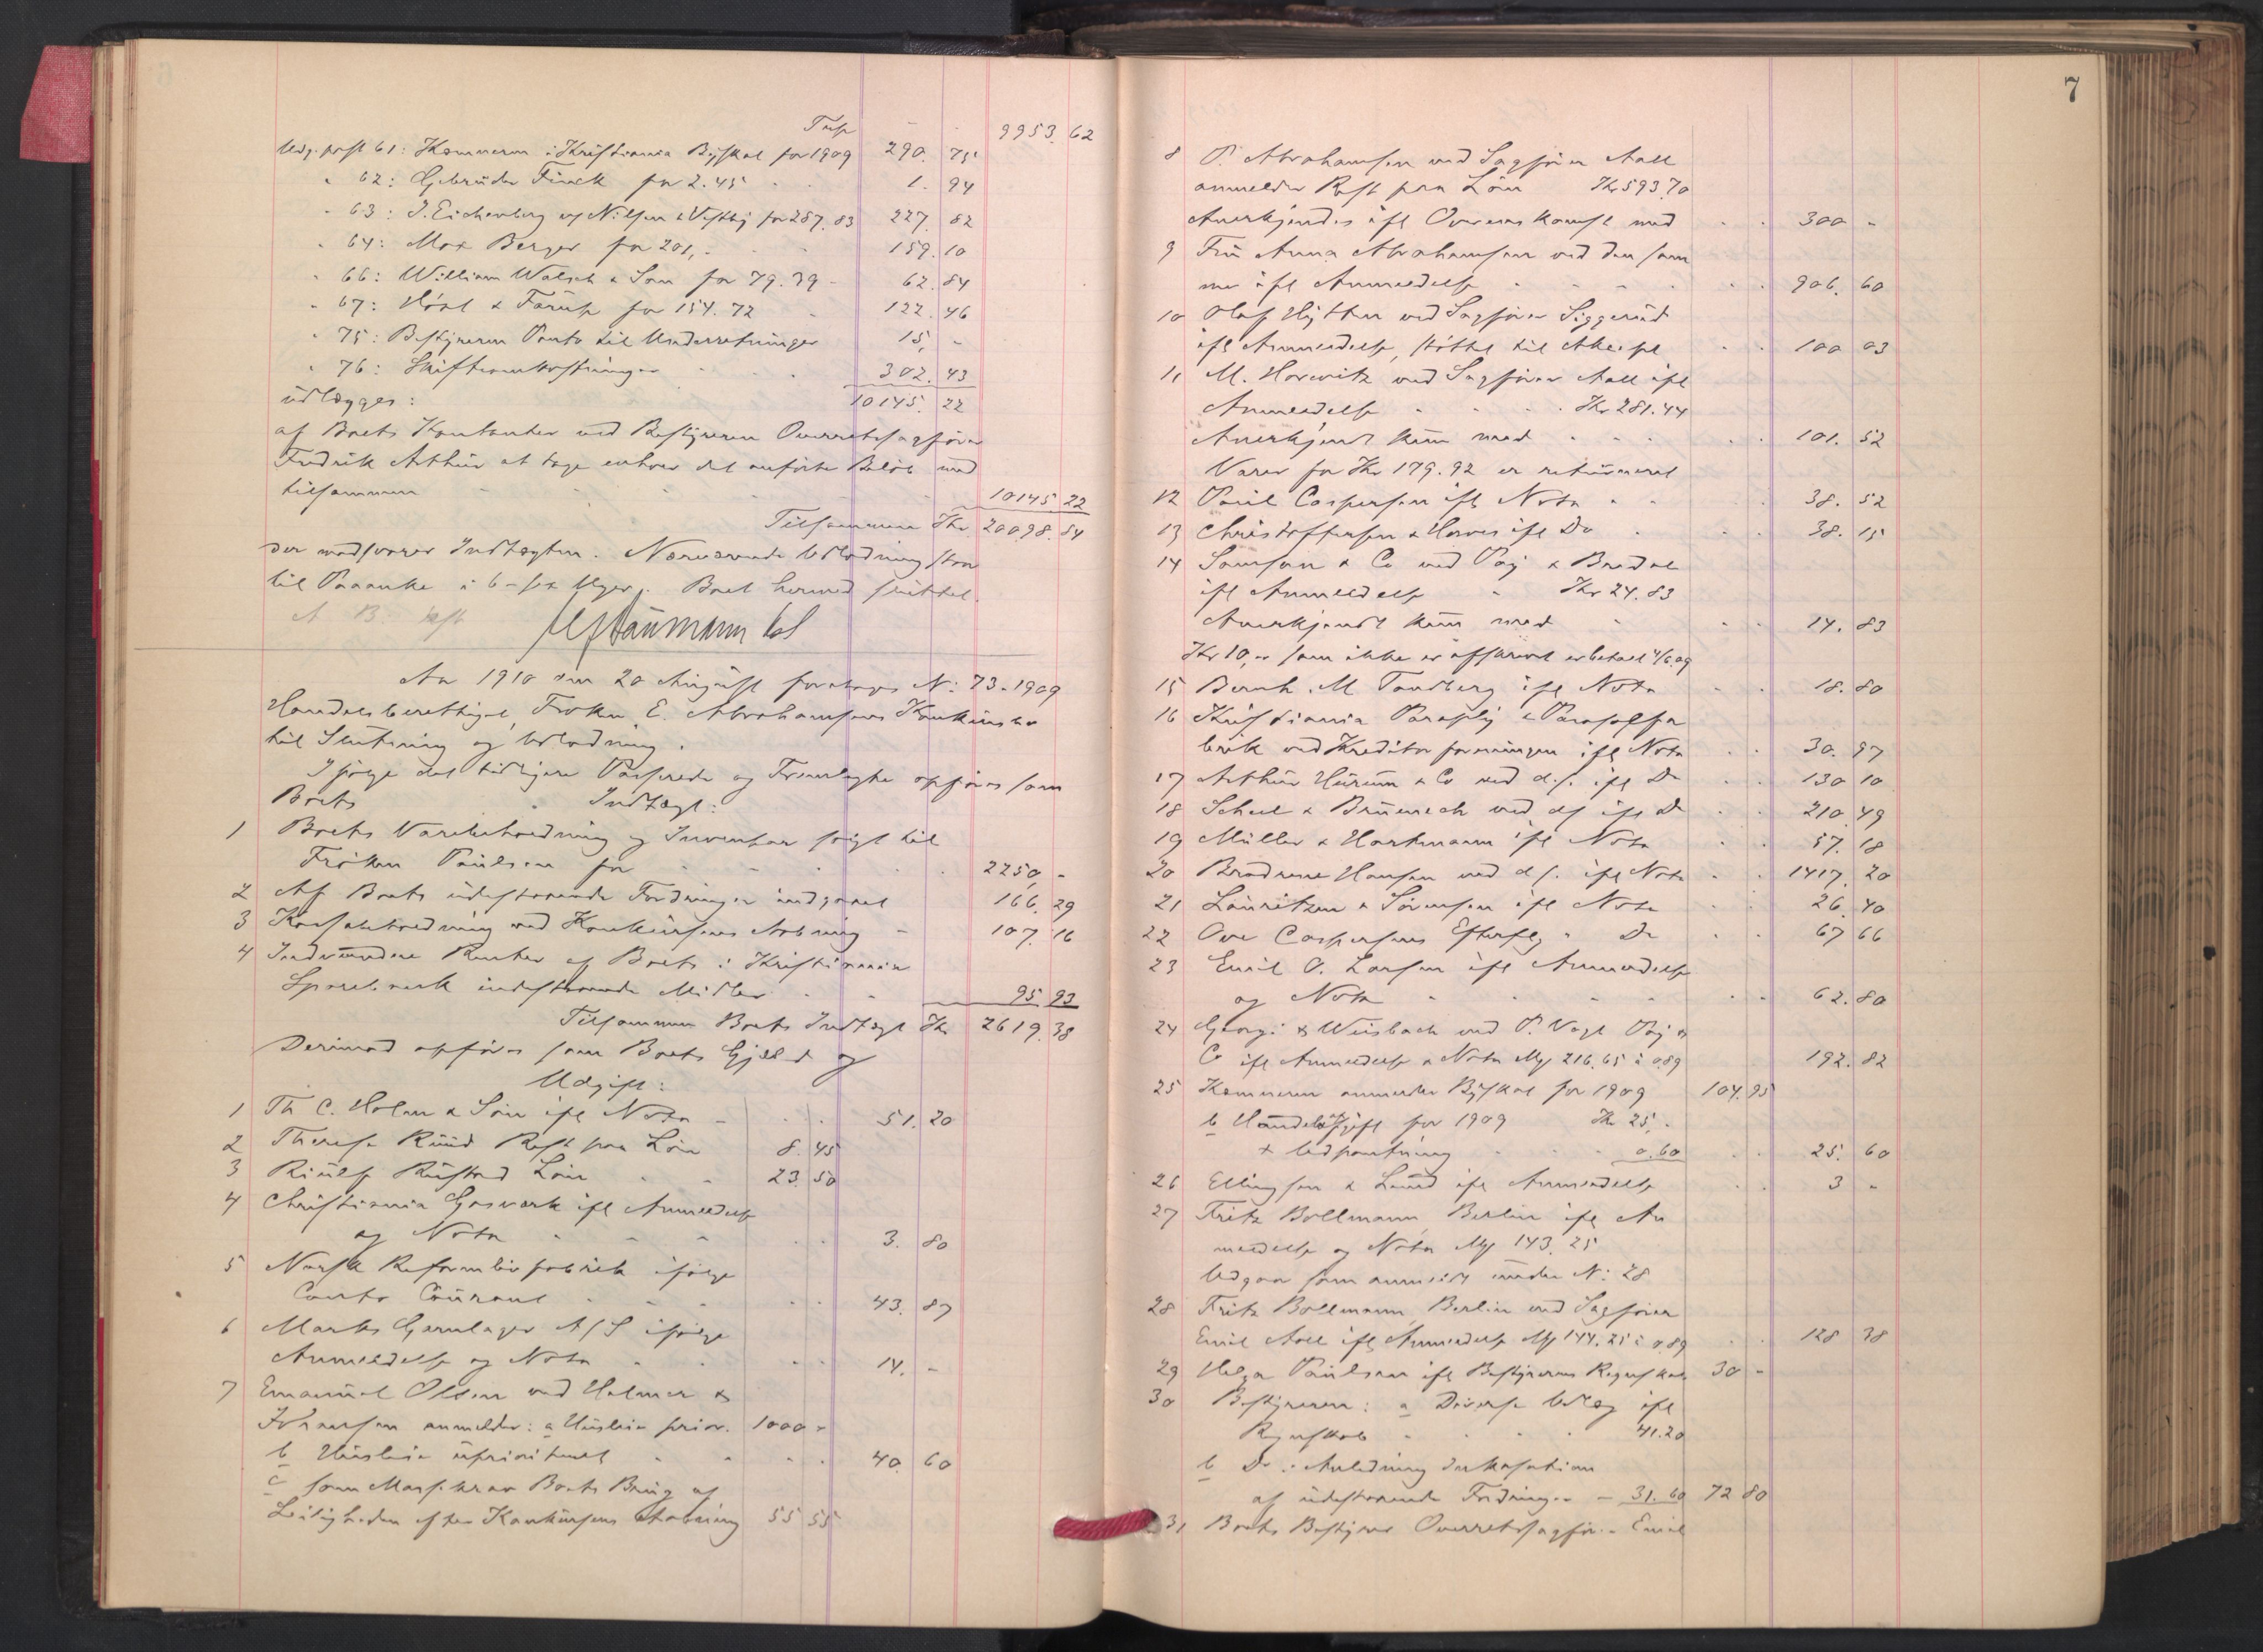 Trsp - - 9953. 62
Udg. post 61: Kemneren i Kristiania Byskat for 1909 290. 75
" 62: Gebrüder Finck for 2.45 1. 94
" 63: J. Eichenberg v/ Nilsen & Vestby for 287.83 227. 82
" 64: Max Berger for 201,- 159. 10
" 66: William Walsch & Son for 79.39 62. 84
" 67: Høst & Farup for 154.72 122. 46
" 75: Bestyreren Porto til Underretninger 15, -
" 76: Skifteomkostninger 302. 43
udlægges: 10145. 22
af Boets Kontanter ved Bestyreren Overretssagfører
Fredrik Arthur at tage enhver det anførte Beløb med
tilsammen 10145. 22
Tilsammen Kr. 20098. 84
der modsvarer Indtægten. Nærværende Udlodning staar
til Paaanke i 6-sex Uger. Boet hermed sluttet.
Aar 1910 den 20 August foretoges N: 73-1909
Handelsberettiget Frøken E. Abrahamsens Konkursbo
til Slutning og Udlodning.
Ifølge det tidligere Passerede og Fremlagte opføres som
Boets Indtægt:
1 Boets Varebeholdning og Inventar solgt til
Frøken Paulsen for 2250, -
2 Af Boets udestaaende Fordringer indgaaet 166. 29
3 Kassabeholdning ved Konkursens Aabning 107. 16
4 Indvundne Renter af Boets i Kristiania
Sparebank indestaaende Midler 95 93
Tilsammen Boets Indtægt Kr 2619. 38
Derimod opføres som Boets Gjæld og
Udgift:
1 Th C. Holm & Søn ifl Nota 51. 20
2 Therese Ruud Rest paa Løn 8. 45
3 Rustad Løn 23. 50
4 Christiania Gasverk ifl Anmeldelse
og Nota 3. 80
5 Norsk Reformlivfabrik ifølge
Conto Courant 43. 87
6 Marks Garnlager A/S ifølge
Anmeldelse og Nota 14. -
7 Emanuel Olsen ved Holmer &
Johansen anmelder: a Husleie prior. 1000 -
b Husleie uprioriteret 40. 60
c som Massekrav Boets Brug af
Leiligheden efter Konkursens Aabning 55 55
7
8 P. Abrahamsen ved Sagfører Aall
anmelder Rest paa Løn Kr 593.70
Anerkjendes ifl Overenskomst med 300 -
9 Fru Anna Abrahamsen ved den sam
me ifl Anmeldelse 906. 60
10 Olaf Hytten ved Sagfører Siggerud
ifl Anmeldelse, støttet til Accept 100 03
11 M. Horwitz ved Sagfører Aall ifl
Anmeldelse Kr 281.44
Anerkjendt kun med 101. 52
Varer for Kr 179.92 er returneret
12 Paul Caspersen ifl Nota 38. 52
13 Christoffersen & Horves ifl Do 38. 15
14 Samson & Co ved Paj & Bredal
ifl Anmeldelse Kr 24.83
Anerkjendt kun med 14. 83
Kr 10,- som ikke er afskrevet er betalt 4/6.09
15 Bernh. M Tandberg ifl Nota 18. 80
16 Kristiania Paraply & Parasolfa
brik ved Kreditorforeningen ifl Nota 30. 97
17 Arthur Hurum & Co ved d.s. ifl Do 130 10
18 Scheel & Brünech ved ds ifl Do 210. 49
19 Müller & Hartmann ifl Nota 57. 18
20 Brødrene Hansen ved ds. ifl Nota 1417. 20
21 Lauritzen & Sørensen ifl Nota 26. 40
22 Ove Caspersens Efterflg " Do 67 66
23 Emil O. Larsen ifl Anmeldelse
og Nota 62. 80
24 Georgi & Weisbach ved P. Vogt Paj &
Co ifl Anmeldelse & Nota Mk 216.65 à 0.89 192. 82
25 Kemneren anmelder Byskat for 1909 104. 95
b Handelsafgift for 1909 Kr 25,-
+ Udpantning 0.60 25. 60
26 Ellingsen & Lund ifl Anmeldelse 3 -
27 Fritz Bollmann, Berlin ifl An
meldelse og Nota Mk 143.25
Udgaar som anmeldt under N: 28
28 Fritz Bollmann, Berlin ved Sagfører
Emil Aall ifl Anmeldelse Mk 144.25 à 0.89 128 38
29 Helga Paulsen ifl Bestyrerens Regnskab 30 -
30 Bestyreren: a Diverse Udlæg ifl
Regnskab 41.20
b Do i Anledning Inkasation
af udestaaende Fordringer - 31.60 72 80
31 Boets Bestyrer Overretssagfører Emil